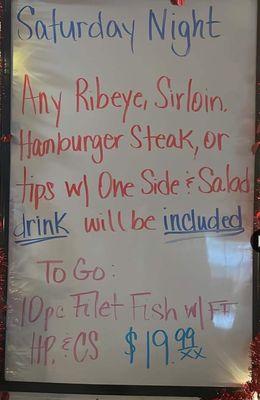 Saturday Night
Any Ribeye, Sirloin.
Hamburger Steak, or
tips w/ One Side & Salad
drink will be included
To Go:
10pc Filet Fish w/ FF
HP. & CS $19.99
xx